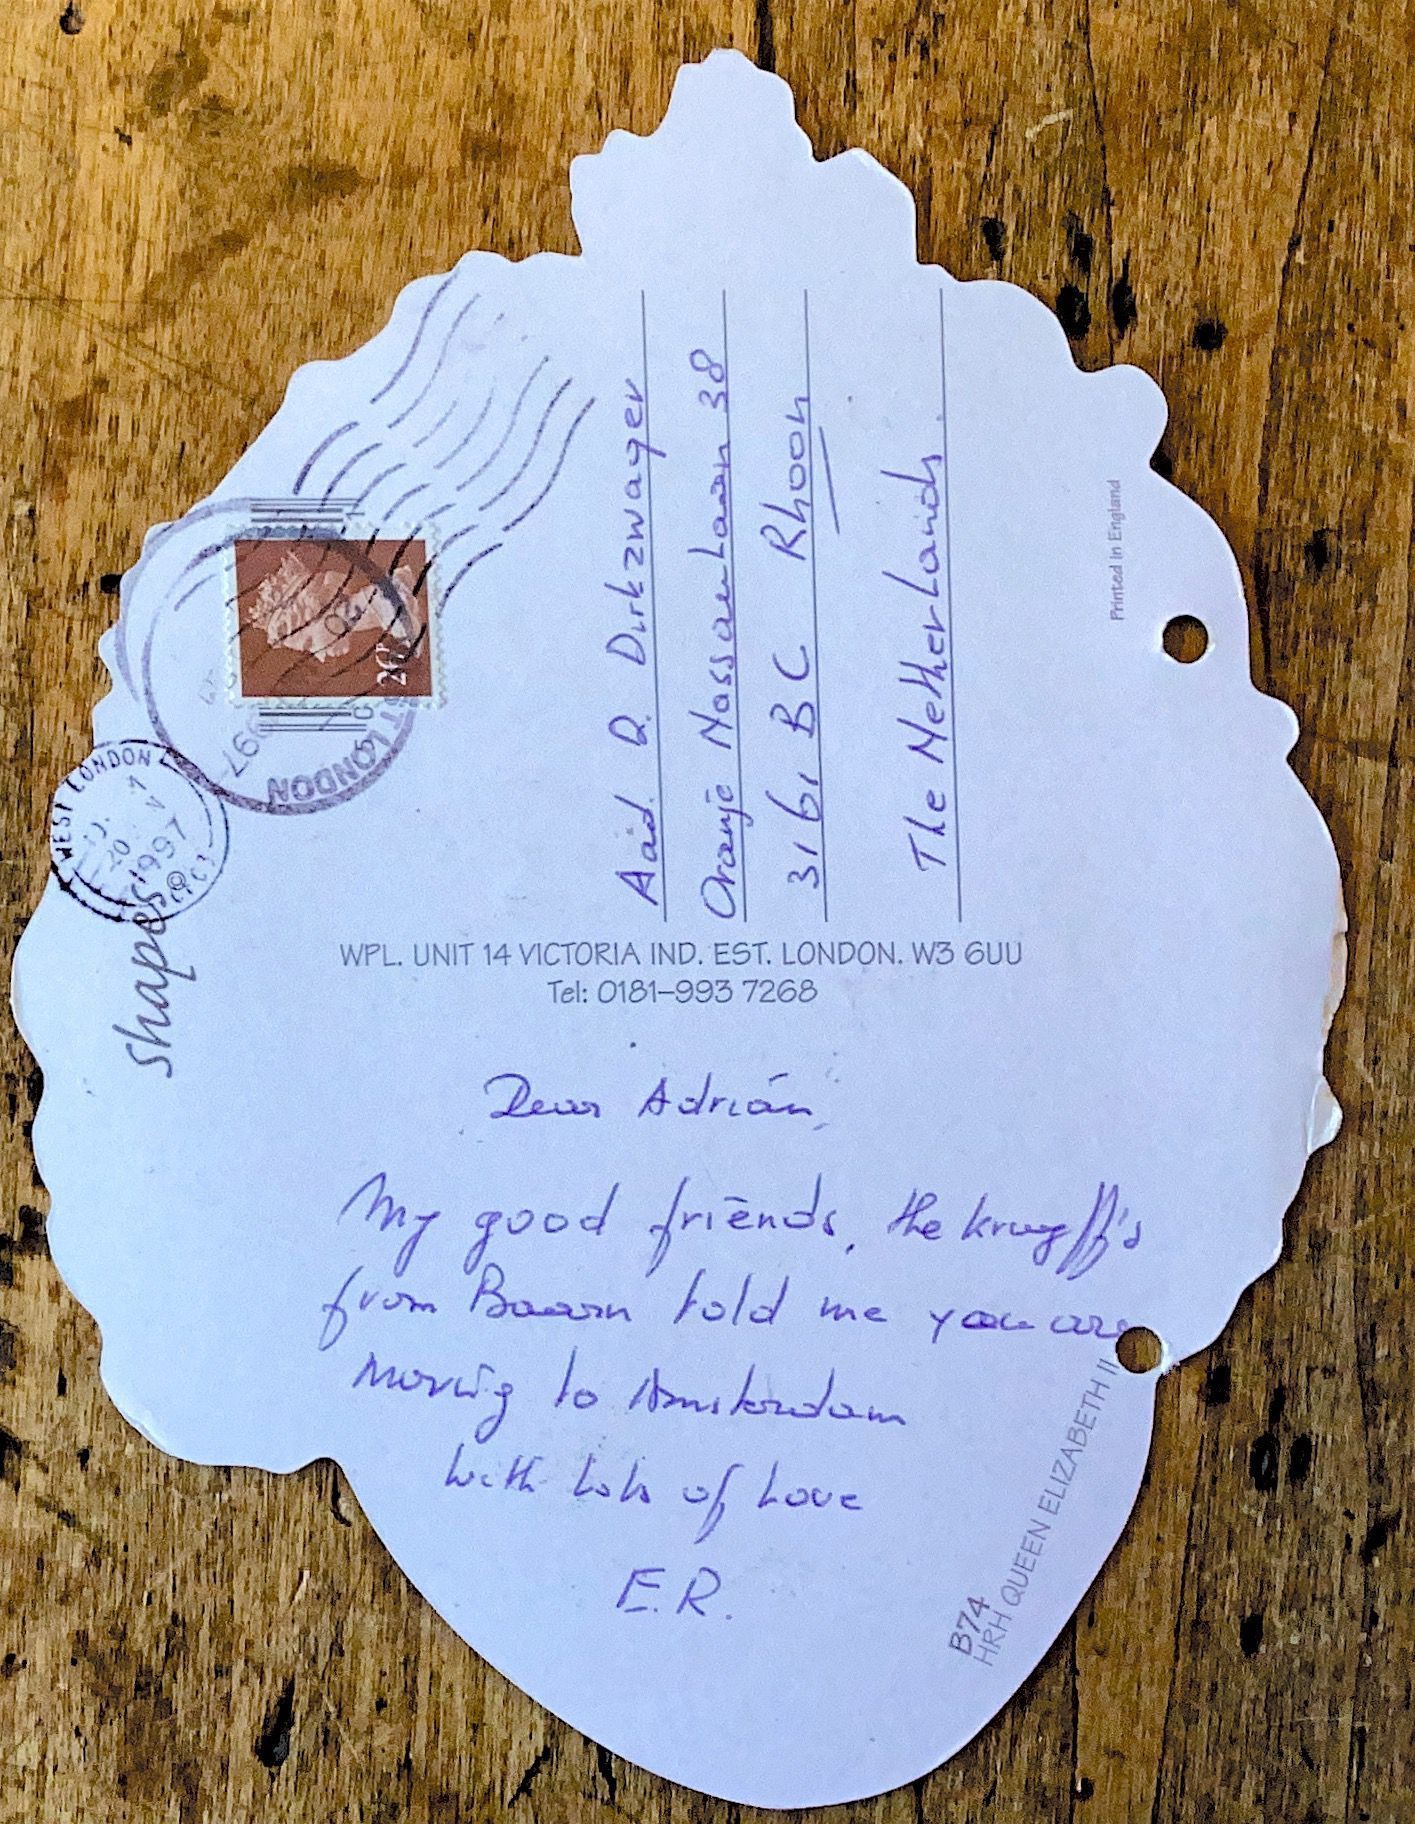 Aad. D. Dirkzwager
Oranje Nassaulaan 38
3161 BC Rhoon
The Netherlands.
Printed in England
26P
LONDON
WEST LONDON
20 V
1997
shapes©
WPL. UNIT 14 VICTORIA IND. EST. LONDON. W3 6UU
Tel: 0181-993 7268
Dear Adrian,
My good friends, the Kruyff's
from Baarn told me you are
moving to Amsterdam
with lots of love
E.R.
B74
HRH QUEEN ELIZABETH II